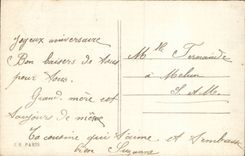 Joyeux anniversaire
Bon baisers de tous
pour tous.
Grand. mère est
toujours de même
Ta cousine qui t'aime et t'embrasse
bien Suzanne
Mlle Fernande
à Melun
S. et M.
C.R. PARIS